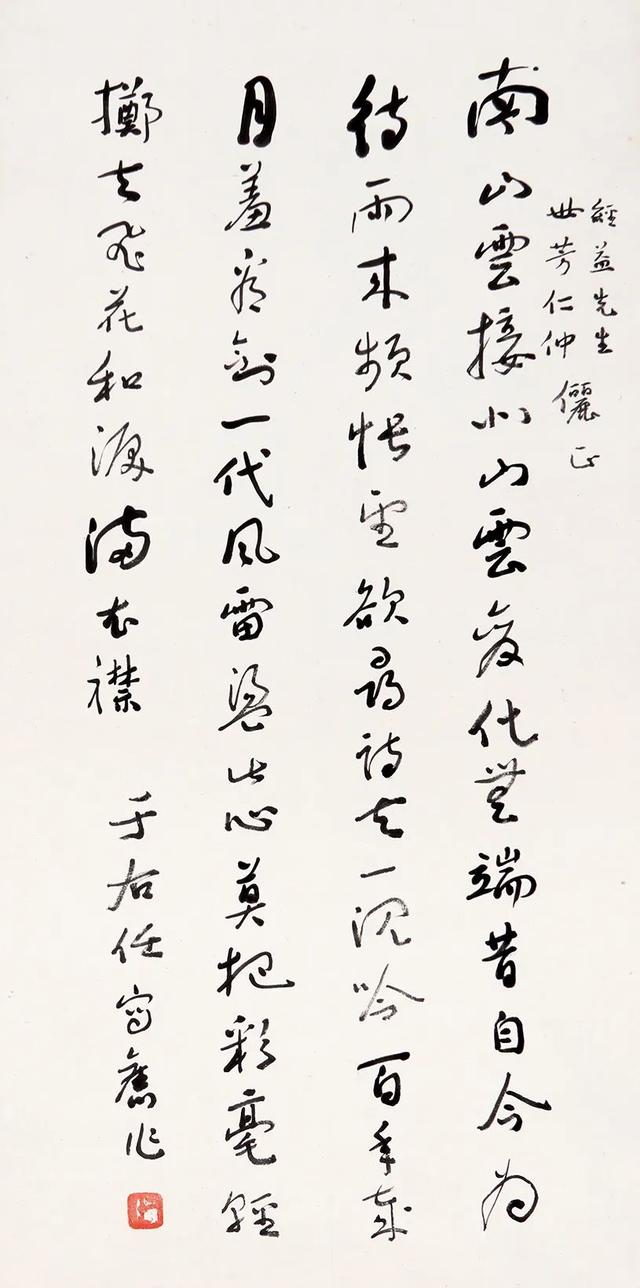 經益先生
世芳仁仲 儷正
南山雲接北山雲變化無端昔自今為
待雨來頻悵望欲尋詩去一沉吟百年歲
月羞看劍一代風雷盪此心莫把彩毫輕
擲去飛花和淚滿衣襟
于右任寫舊作